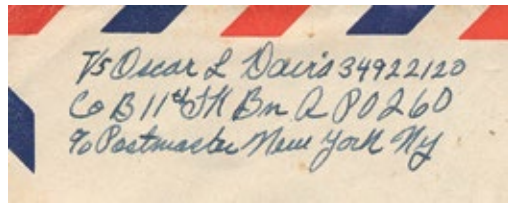 T/5 Oscar L Davis 34922120
Co B 11th TK Bn APO 260
c/o Postmaster New York NY